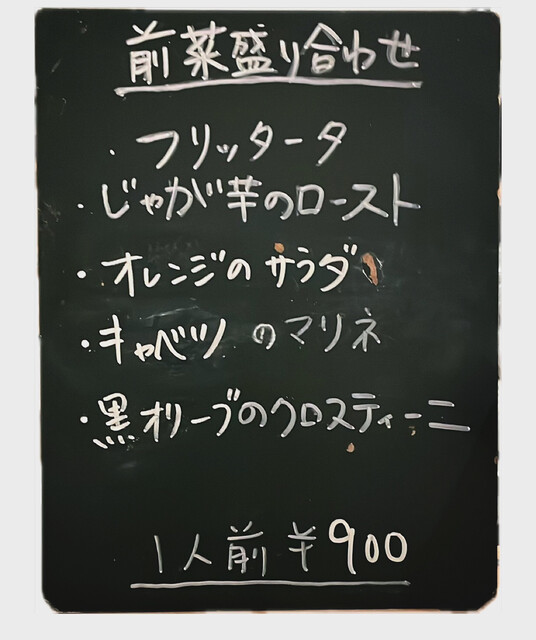 前菜盛り合わせ
・フリッタータ
・じゃが芋のロースト
・オレンジのサラダ
・キャベツのマリネ
・黒オリーブのクロスティーニ
1人前¥900